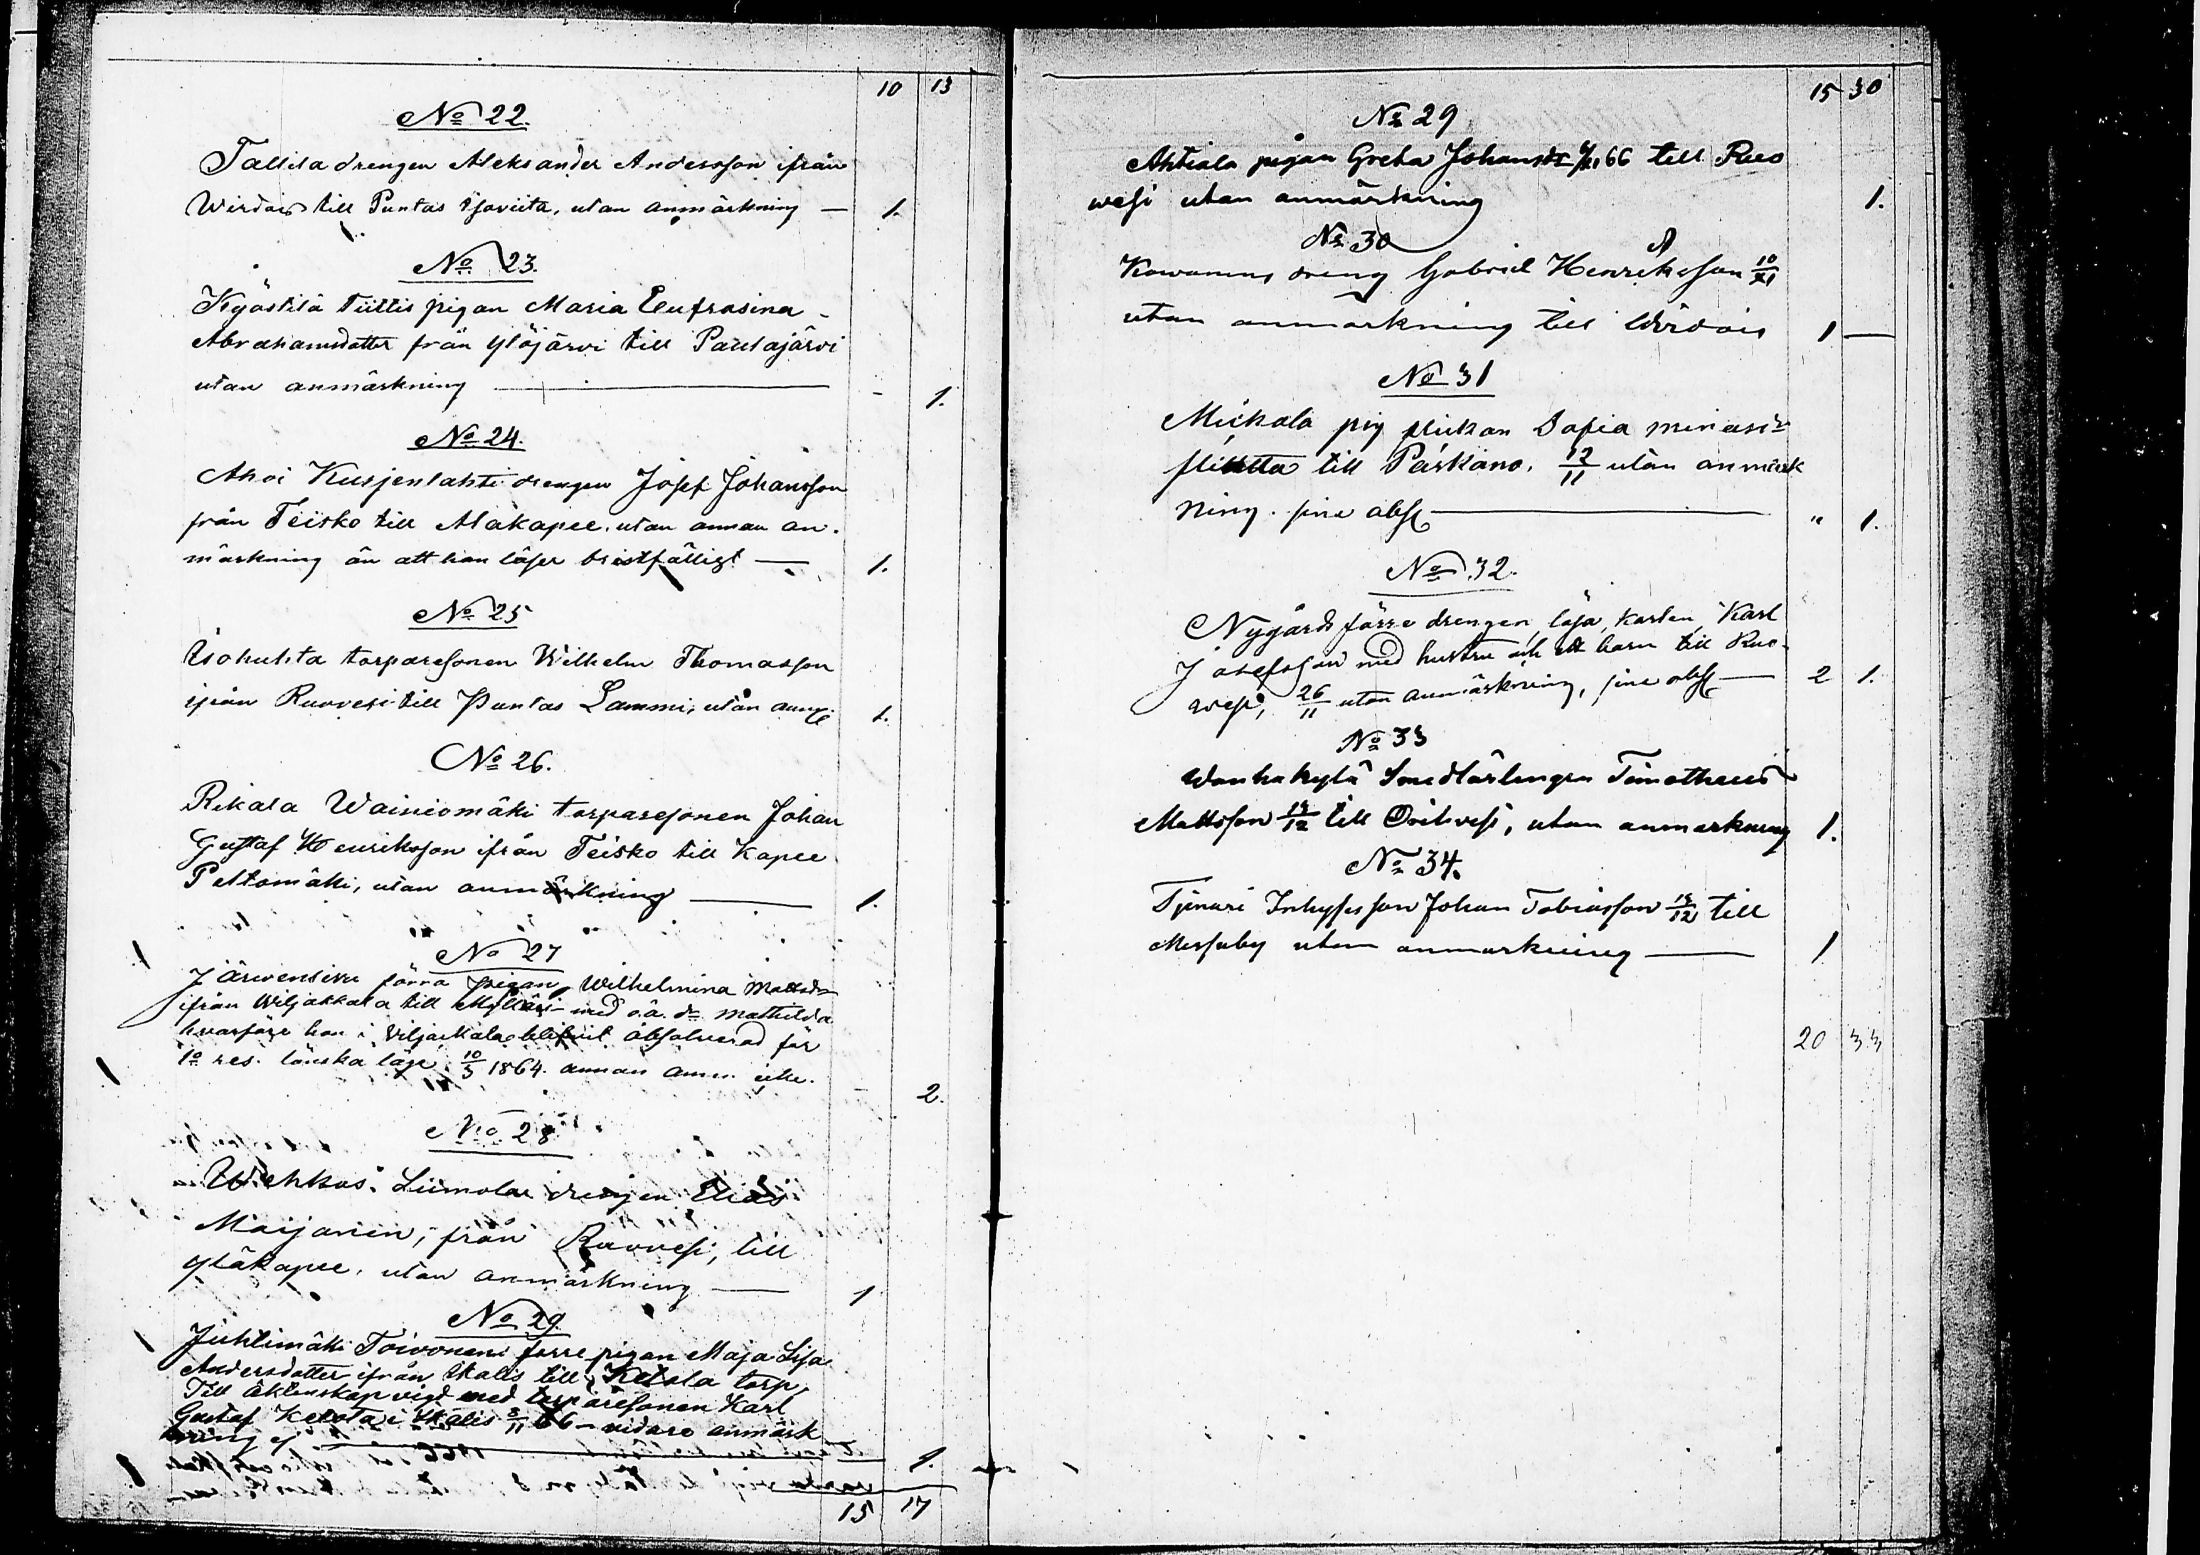 10 13
No 22.
Tallila drengen Aleksander Andersson ifrån
Wirdois till Puntas Isoviita, utan anmärkning — 1.
No 23.
Kyöstilä tiittis pigan Maria Eufrosina
Abrahamsdotter från Ylöjärvi till Paulajärvi
utan anmärkning — - 1.
No 24.
Ahoi Kusjenlahti drengen Josef Johansson
från Teisko till Alakapee, utan annan an-
märkning än att han läser bristfälligt — 1.
No 25
Isohuhta torparesonen Wilhelm Thomasson
ifrån Ruovesi till Puntas Lammi, utan 1.
No 26.
Rikala Wainiomäki torparesonen Johan
Gustaf Henriksson ifrån Teisko till Kapee
Peltomäki, utan anmärkning — 1.
No 27
Järvensivu förra pigan Wilhelmina Mattsdr
ifrån Wiljakkala till Mylläri med o.ä. dr Mathilda
hvarföre hon i Viljakkala blifvit absolverad för
1o res. lönska läge 10/5 1864. annan anm. icke.
2.
No 28
Wehkos. Liimolai drengen Elias
Maijanen, från Ruovesi, till
Yläkapee, utan anmärkning — 1
No 29.
Juhtimäki Toivonens förre pigan Maja Lisa
Andersdotter ifrån Ikalis till Ketola torp,
Till äktenskap vigd med torparesonen Karl
Gustaf Ketola i Ikalis 8/11 66 — vidare anmärk
ning ej 1.
15 17
15 30
No 29
Ahtiala pigan Greta Johansdr 66 till Ruo
wesi utan anmärkning 1.
No 30
Kowanens dreng Gabriel Henriksson 10/XI
utan anmarkning till Wirdois 1 —
No 31
Mickala pig flickan Sofia
till Parkano. 12/11 utan anmärk
ning. sine abs — " 1.
No 32.
Nygårds förre drengen, lösa karlen, Karl
Josefsson med hustru och ett barn till Ruo-
wesi, 26/11 utan anmärkning, sine abs — 2 1.
No 33
Wanhakylä Smedlärlingen Timotheus
Mattsson 14/12 till Orihvesi, utan anmerkning 1.
No 34.
Tjenari Inhysesson Johan Tobiasson 14/12 till
Messuby utan anmarkning — 1
20 33